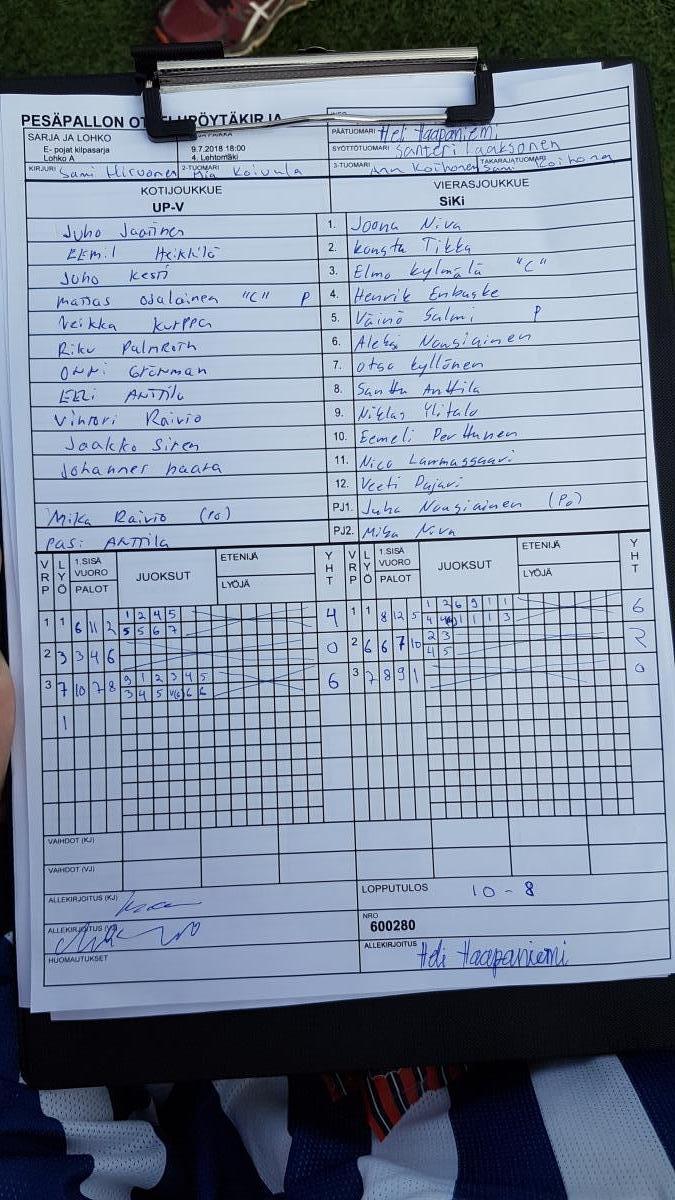 PESÄPALLON OTTELUPÖYTÄKIRJA
SARJA JA LOHKO
E- pojat kilpasarja
Lohko A
9.7.2018 18:00
4. Lehtomäki
PÄÄTUOMARI Heli Haapaniemi
SYÖTTÖTUOMARI Santeri Laaksonen
KIRJURI Sami Hirvonen 2-TUOMARI Mia Koivula 3-TUOMARI Koihonen TAKARAJATUOMARI Sami Koihonen
KOTIJOUKKUE VIERASJOUKKUE
UP-V SiKi
Juho Jaarinen 1. Joona Niva
EEMil Heikkilä 2. Konsta Tikka
Juho Kesti 3. Elmo Kylmälä "C"
Matias Ojalainen "C" P 4. Henrik Enbuske
Veikka Kurppa 5. Väinö Salmi P
Riku PalmRoth 6. Aleksi Nousiainen
ONNi GRÖNMAN 7. Otso Kyllönen
EELi ANTTILA 8. Santtu Anttila
Vihtori Raivio 9. Niklas Ylitalo
Jaakko Siren 10. Eemeli Perttunen
Johannes haara 11. Nico Lammassaari
12. Veeti Pajari
Mika Raivio (PO) PJ1. Juha Nousiainen (PO)
Pasi ANTTILA PJ2. Mika Niva
VRP LYÖ 1.SISÄ VUORO PALOT JUOKSUT ETENIJÄ LYÖJÄ YHT VRP LYÖ 1.SISÄ VUORO PALOT JUOKSUT ETENIJÄ LYÖJÄ YHT
1 1 6 11 2 1 2 4 5 4 1 1 8 12 5 1 2 6 9 1 1 6
5 5 6 7 1 1 1 3
2 3 3 4 6 0 2 6 6 7 10 2 3 2
4 5
3 7 10 7 8 9 1 2 3 4 5 6 3 7 8 9 1 0
3 4 5 6 6
1
VAIHDOT (KJ)
VAIHDOT (VJ)
ALLEKIRJOITUS (KJ) LOPPUTULOS 10 - 8
ALLEKIRJOITUS (VJ) NRO
600280
HUOMAUTUKSET ALLEKIRJOITUS Heli Haapaniemi